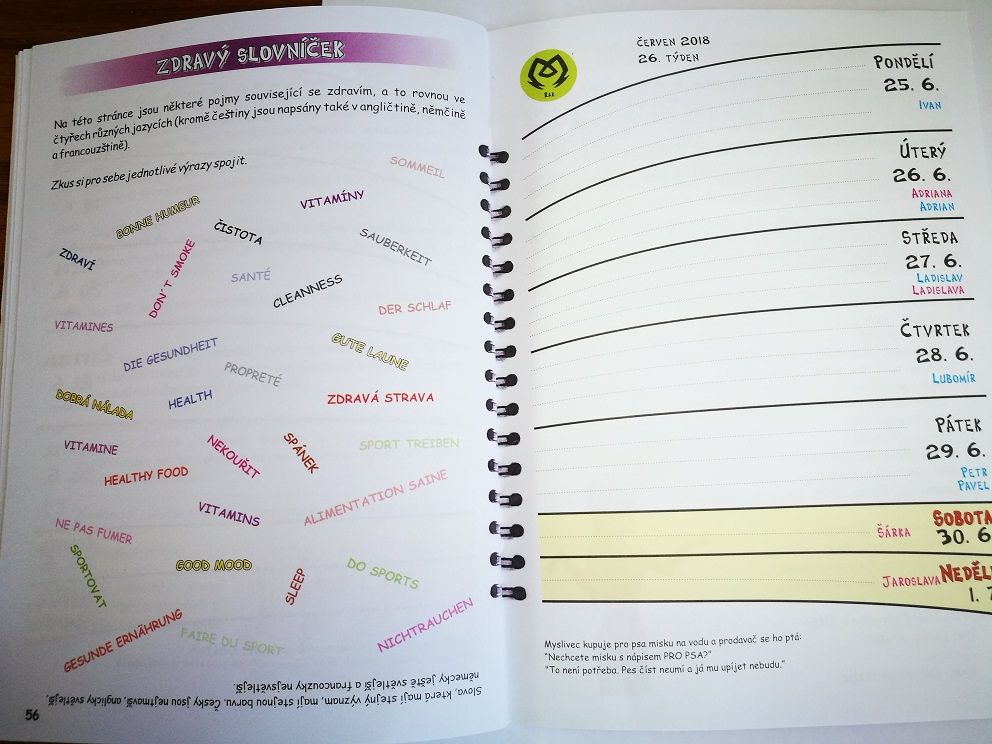 ZDRAVÝ SLOVNÍČEK
Na této stránce jsou některé pojmy související se zdravím, a to rovnou ve
čtyřech různých jazycích (kromě češtiny jsou napsány také v angličtině, němčině
a francouzštině).
Zkus si pro sebe jednotlivé výrazy spojit.
SOMMEIL
BONNE HUMEUR
VITAMÍNY
ČISTOTA
SAUBERKEIT
ZDRAVÍ
DON´T SMOKE
SANTÉ
CLEANNESS
DER SCHLAF
VITAMINES
DIE GESUNDHEIT
GUTE LAUNE
PROPRETÉ
DOBRÁ NÁLADA
HEALTH
ZDRAVÁ STRAVA
VITAMINE
NEKOUŘIT
SPÁNEK
SPORT TREIBEN
HEALTHY FOOD
ALIMENTATION SAINE
VITAMINS
NE PAS FUMER
SPORTOVAT
GOOD MOOD
SLEEP
DO SPORTS
GESUNDE ERNÄHRUNG
FAIRE DU SPORT
NICHTRAUCHEN
Slova, která mají stejný význam, mají stejnou barvu. Česky jsou nejtmavší, anglicky světlejší,
německy ještě světlejší a francouzky nejsvětlejší.
56
ČERVEN 2018
26. TÝDEN
RAK
PONDĚLÍ
25. 6.
IVAN
ÚTERÝ
26. 6.
ADRIANA
ADRIAN
STŘEDA
27. 6.
LADISLAV
LADISLAVA
ČTVRTEK
28. 6.
LUBOMÍR
PÁTEK
29. 6.
PETR
PAVEL
SOBOTA
ŠÁRKA
30. 6
NEDĚL
JAROSLAVA
1. 7
Myslivec kupuje pro psa misku na vodu a prodavač se ho ptá:
"Nechcete misku s nápisem PRO PSA?"
"To není potřeba. Pes číst neumí a já mu upíjet nebudu."